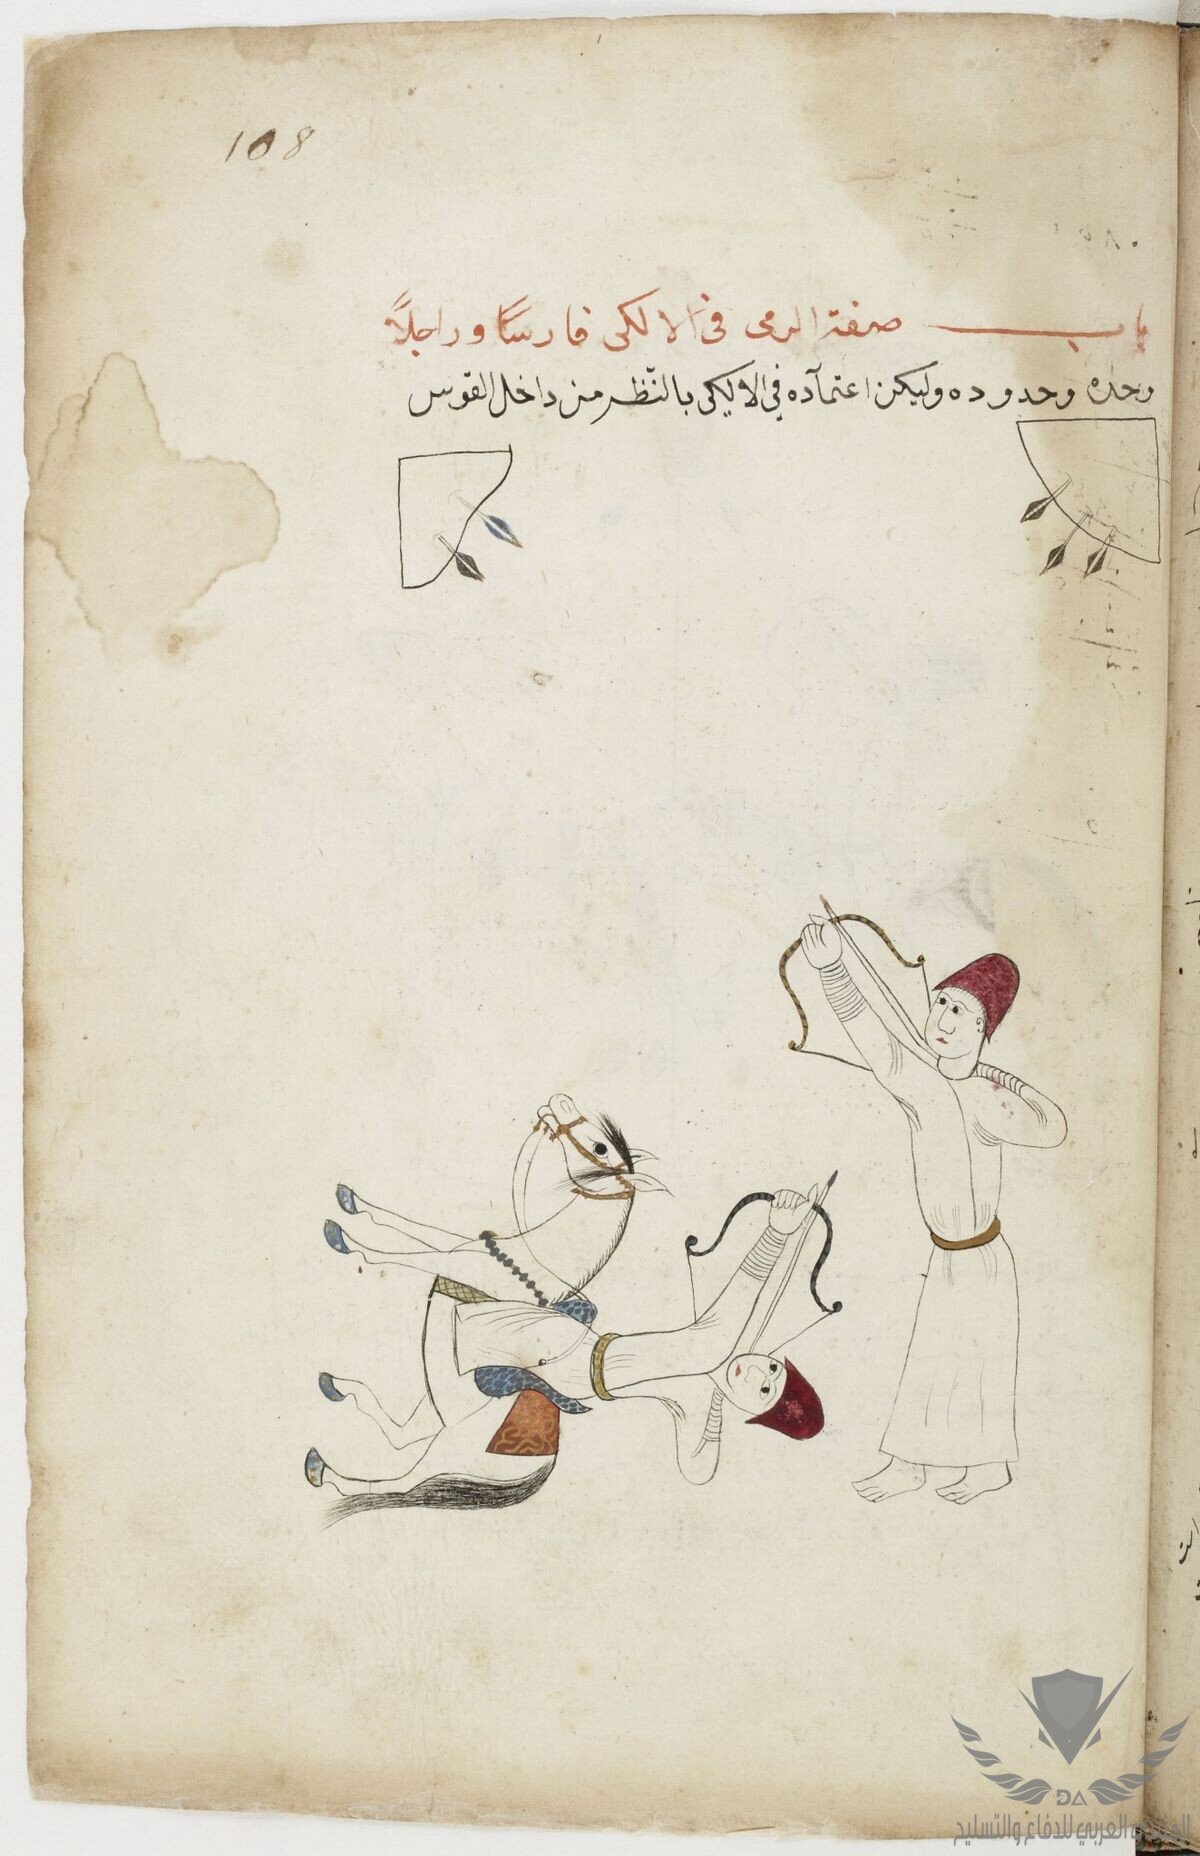 108
باب صفة الرمى فى الالكى فارسًا وراجلًا
وحده وحدوده وليكن اعتماده في الاوليكى بالنّظر من داخل القوس
DA
المنتدى العربي للدفاع والتسليح